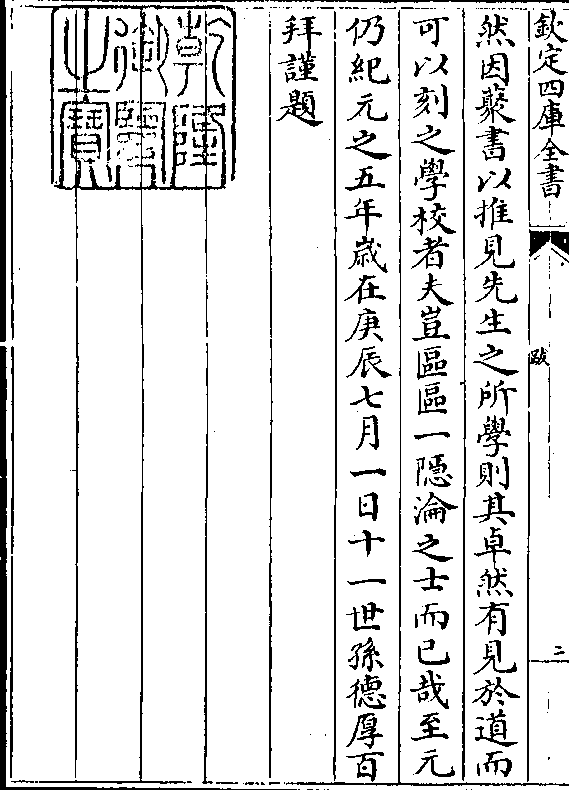 欽定四庫全書
跋
二
然因藂書以推見先生之所學則其卓然有見於道而
可以刻之學校者夫豈區區一隱淪之士而已哉至元
仍紀元之五年歲在庚辰七月一日十一世孫德厚百
拜謹題
乾隆御覽之寶